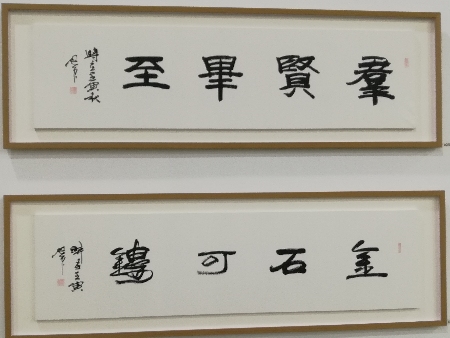 羣賢畢至
時在壬寅秋
金石可鏤
時在壬寅